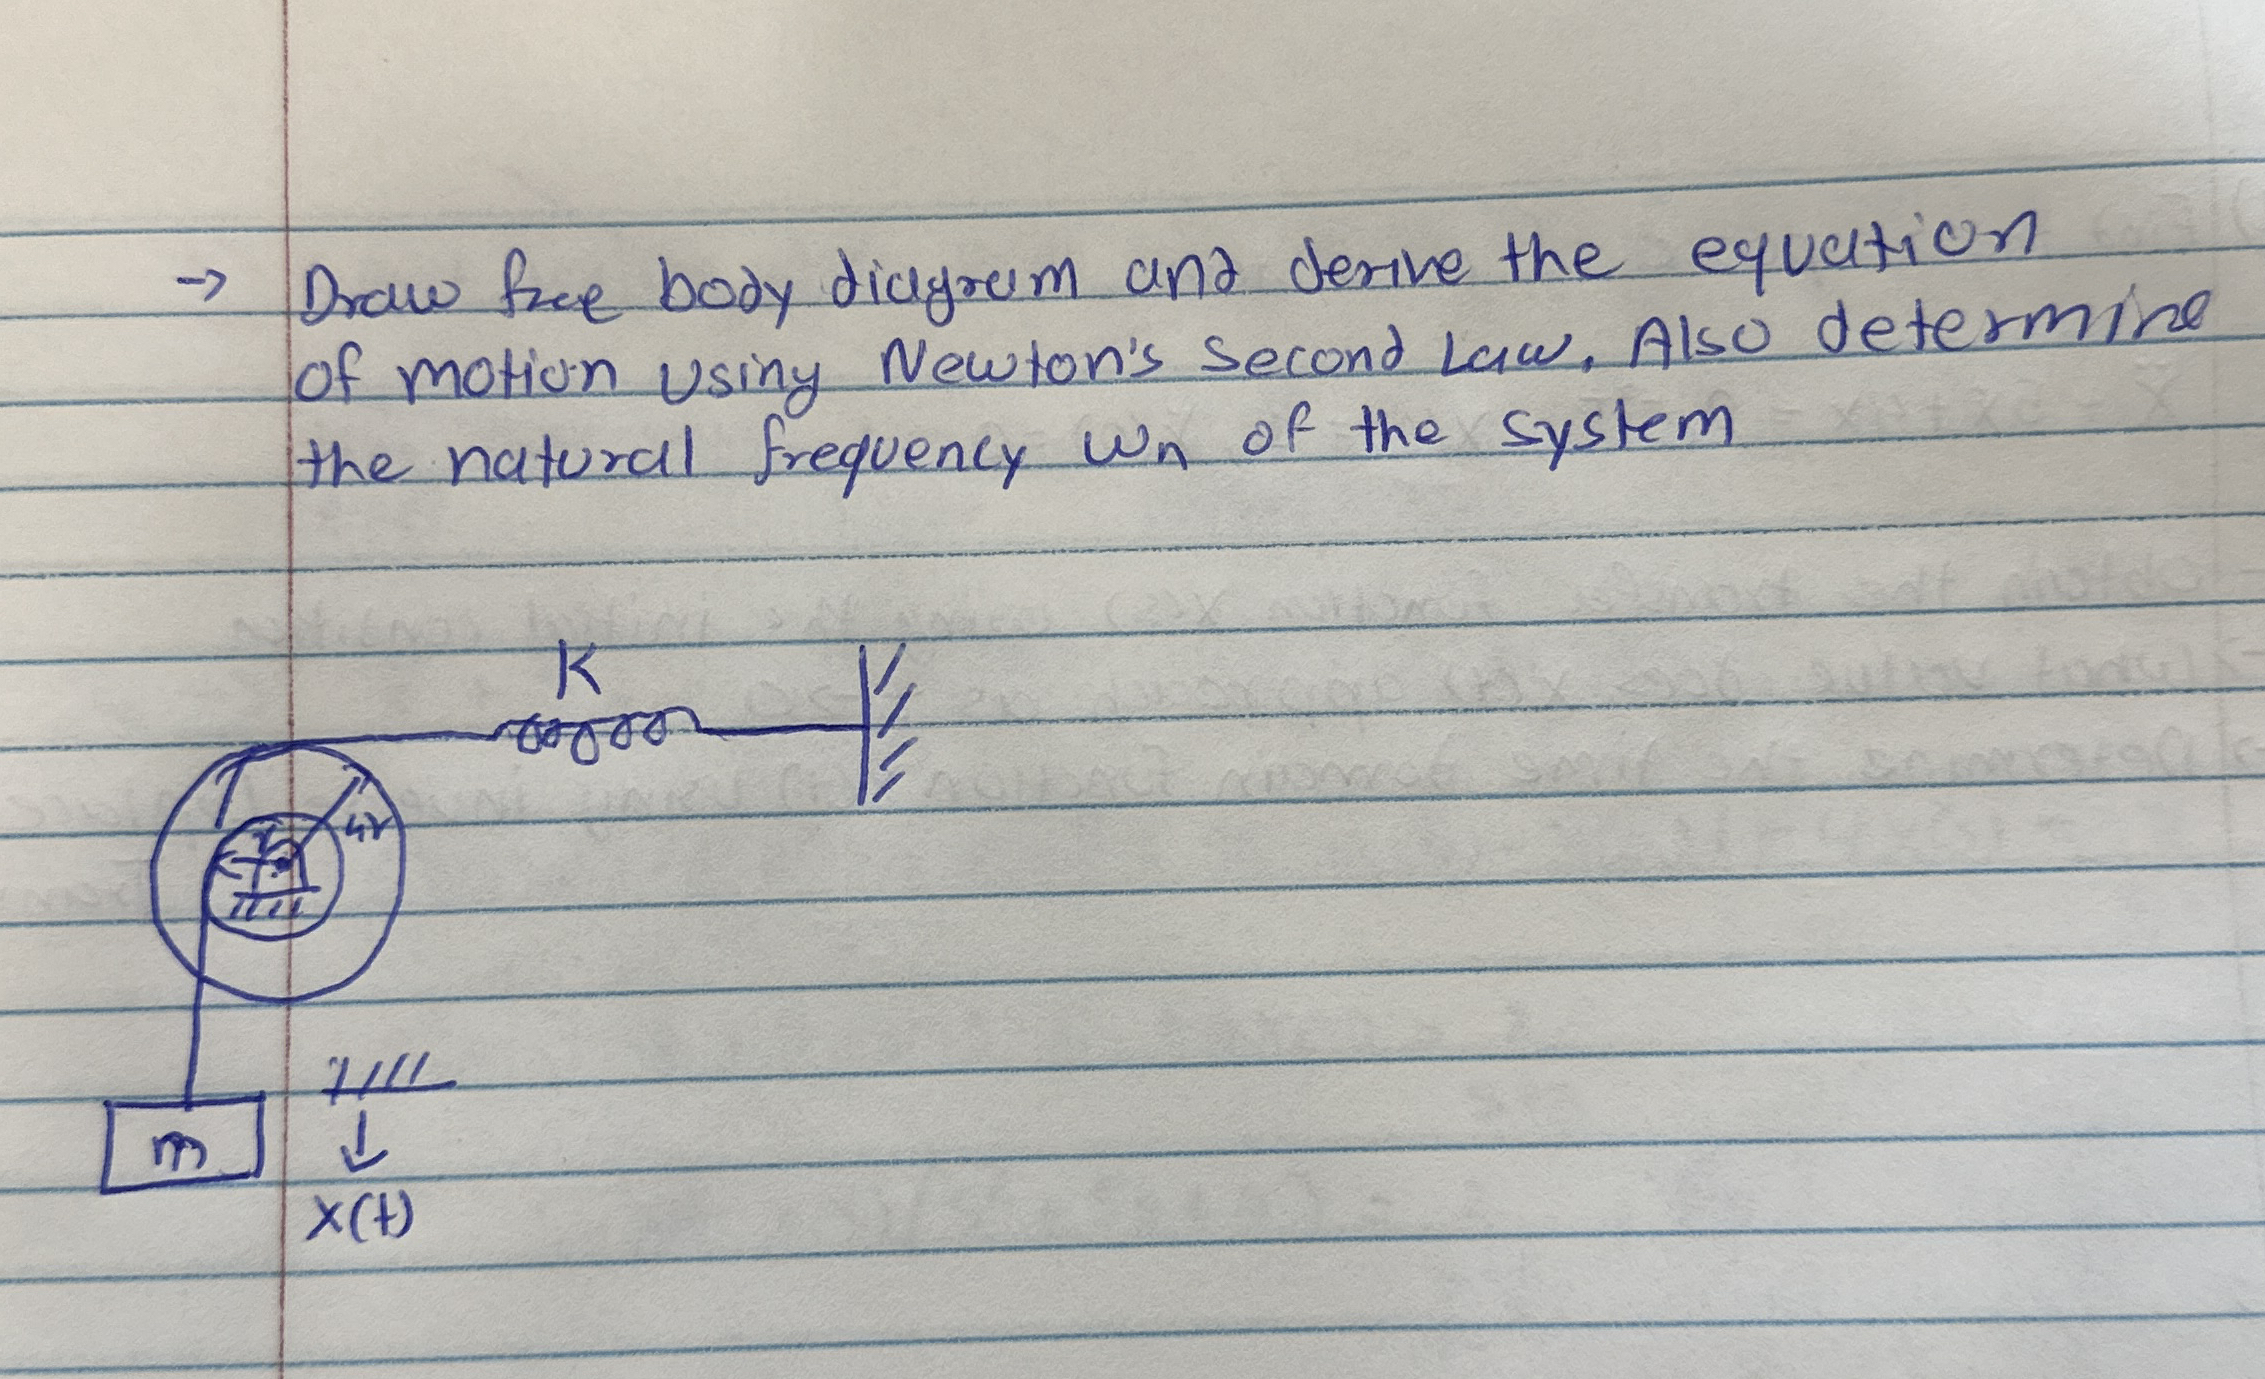 → Draw free body diagram and derive the equation
of motion using Newton's Second Law. Also determine
the natural frequency ωn of the system
K
4r
r
m
x(t)